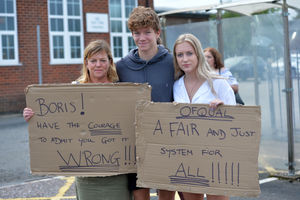 BORIS!
HAVE THE COURAGE
TO ADMIT YOU GOT IT
WRONG!!!
OFQUAL
A FAIR AND JUST
SYSTEM FOR
ALL!!!!!